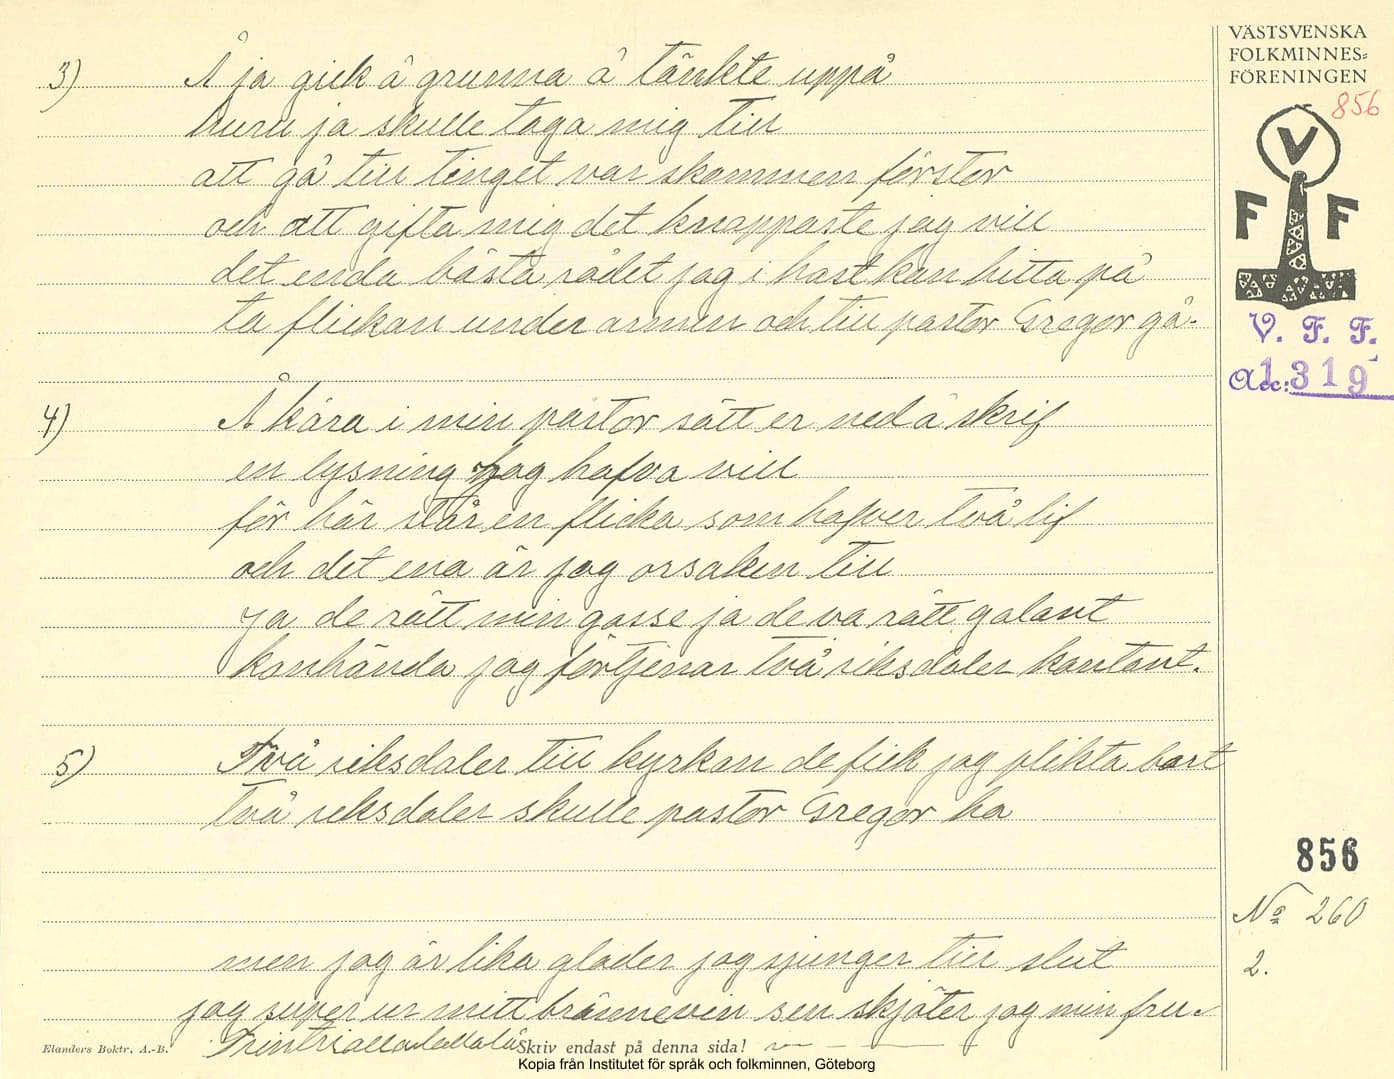 VÄSTSVENSKA
FOLKMINNES=
FÖRENINGEN
856
V
F F
V. F. F.
Acc: 1319
3) Å ja gick å grunna å tänkte uppå
huru ja skulle taga mig till
att gå till tinget var skammen förstor
och att gifta mig det knappaste jag vill
det enda bästa rådet jag i hast kan hitta på
ta flickan under armen och till pastor Gregor gå.
4) Å kära i min pastor sätt er ned å skrif
en lysning jag hafva vill
för här står en flicka som hafver två lif
och det ena är jag orsaken till
ja de rätt min gosse ja de va rätt galant
kanhända jag förtjenar två riksdaler kontant.
5) Två riksdaler till kyrkan de fick jag plikta bort
två riksdaler skulle pastor Gregor ha
856
No 260
2.
men jag är lika glader jag sjunger till slut
jag super ur mitt brännevin sen skjöter jag min fru.
Elanders Boktr. A.-B.
Skriv endast på denna sida!
Kopia från Institutet för språk och folkminnen, Göteborg